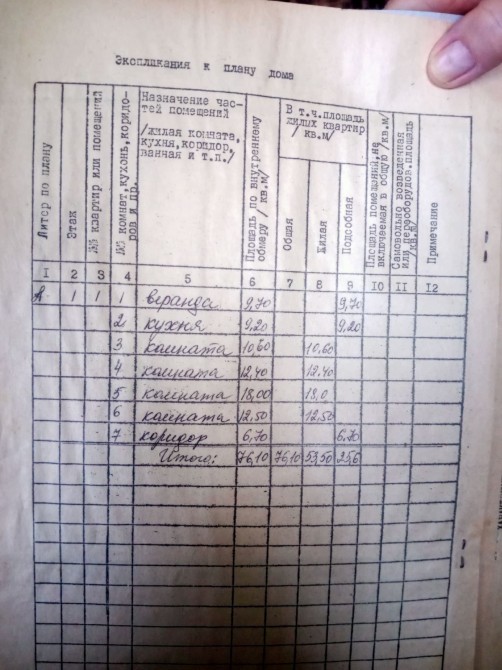 Экспликация к плану дома
Литер по плану
Этаж
№№ квартир или помещений
№№ комнат, кухонь, коридо-
ров и пр.
Назначение час-
тей помещений
/жилая комната,
кухня, коридор,
ванная и т.п./
Площадь по внутреннему
обмеру / кв.м/
В т.ч.площадь
жилых квартир
/ кв.м/
Общая
Жилая
Подсобная
Площадь помещений, не
включаемая в общую /кв.м/
Самовольно возведенная
или переоборудов.площадь
/кв.м/
Примечание
I 2 3 4 5 6 7 8 9 IO II I2
А 1 1 1 веранда 9,70 9,70
2 кухня 9,20 9,20
3 комната 10,60 10,60
4 комната 12,40 12,40
5 комната 18,00 18,0
6 комната 12,50 12,50
7 коридор 6,70 6,70
Итого: 76,10 76,10 53,50 25,6